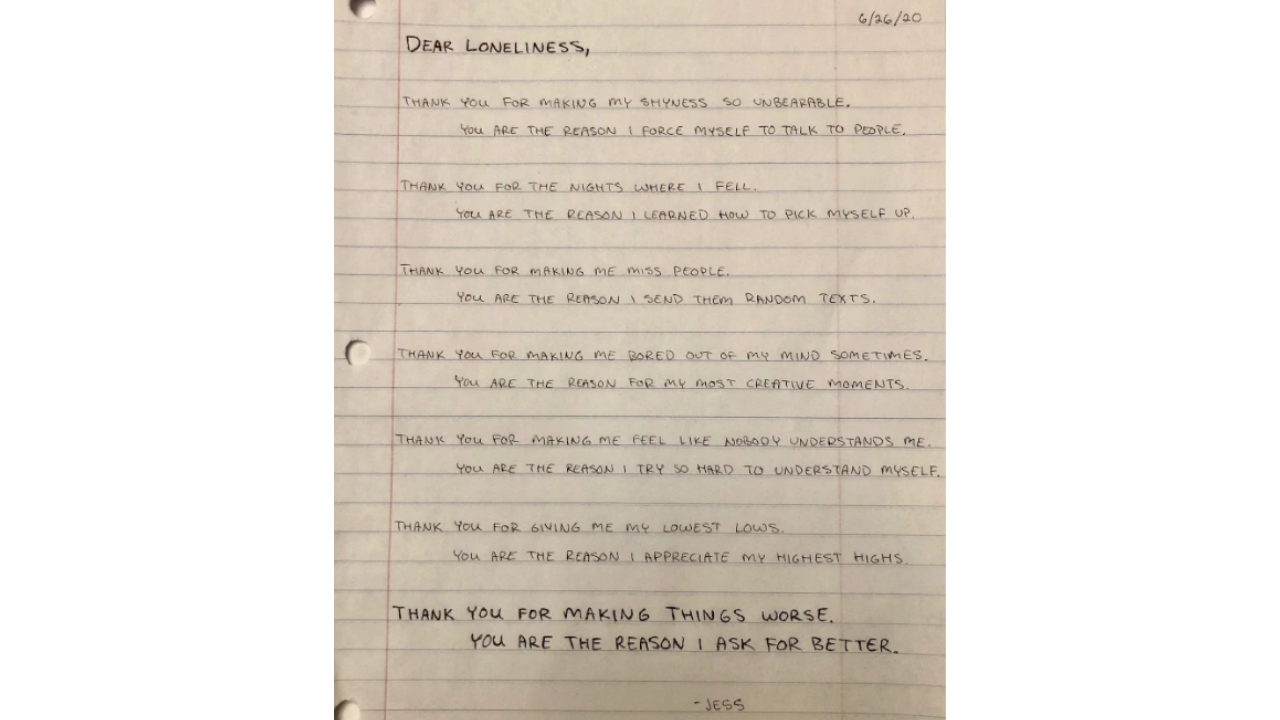 6/26/20
DEAR LONELINESS,
THANK YOU FOR MAKING MY SHYNESS SO UNBEARABLE.
YOU ARE THE REASON I FORCE MYSELF TO TALK TO PEOPLE.
THANK YOU FOR THE NIGHTS WHERE I FELL.
YOU ARE THE REASON I LEARNED HOW TO PICK MYSELF UP.
THANK YOU FOR MAKING ME MISS PEOPLE.
YOU ARE THE REASON I SEND THEM RANDOM TEXTS.
THANK YOU FOR MAKING ME BORED OUT OF MY MIND SOMETIMES.
YOU ARE THE REASON FOR MY MOST CREATIVE MOMENTS.
THANK YOU FOR MAKING ME FEEL LIKE NOBODY UNDERSTANDS ME.
YOU ARE THE REASON I TRY SO HARD TO UNDERSTAND MYSELF.
THANK YOU FOR GIVING ME MY LOWEST LOWS.
YOU ARE THE REASON I APPRECIATE MY HIGHEST HIGHS.
THANK YOU FOR MAKING THINGS WORSE.
YOU ARE THE REASON I ASK FOR BETTER.
-JESS